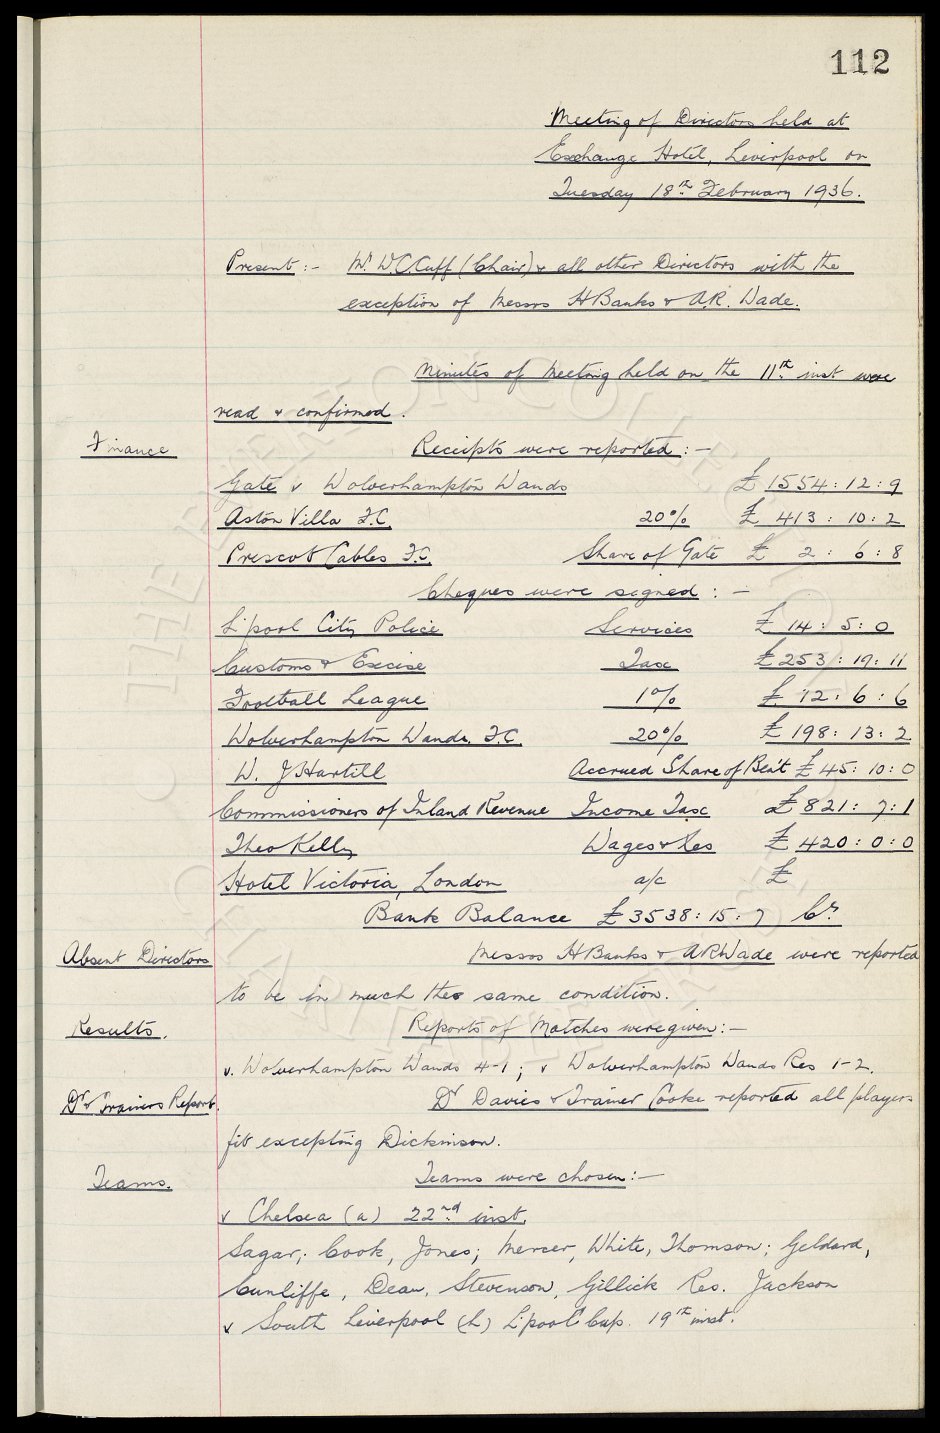 112
Meeting of Directors held at
Exchange Hotel, Liverpool on
Tuesday 18th February 1936.
Present:- Mr WCCuff (Chair) & all other Directors with the
exception of Messrs H Banks & A.R. Wade.
Minutes of Meeting held on the 11th inst were
read & confirmed.
Finance Receipts were reported:-
Gate v Wolverhampton Wands £ 1554:12:9
Aston Villa F.C. 20% £ 413:10:2
Prescot Cables F.C. Share of Gate £ 2:6:8
Cheques were signed:-
L'pool City Police Services £ 14:5:0
Customs & Excise Tax £ 253:19:11
Football League 1% £ 12:6:6
Wolverhampton Wands. F.C. 20% £ 198:13:2
W. J Hartill Accrued Share of Ben't £ 45:10:0
Commissioners of Inland Revenue Income Tax £ 821:7:1
Theo Kelly Wages & Xes £ 420:0:0
Hotel Victoria, London a/c £
Bank Balance £ 3538:15:7 Cr.
Absent Directors Messrs H Banks & ARWade were reported
to be in much the same condition.
Results. Reports of Matches were given:-
v. Wolverhampton Wands 4-1; v Wolverhampton Wands Res 1-2.
Dr & Trainers Report. Dr Davies & Trainer Cooke reported all players
fit excepting Dickinson.
Teams. Teams were chosen:-
v Chelsea (a) 22nd inst.
Sagar; Cook, Jones; Mercer, White, Thomson; Geldard,
Cunliffe, Dean, Stevenson, Gillick Res. Jackson
v South Liverpool (h) L'pool Cup. 19th inst.
© THE EVERTON COLLECTION
CHARITABLE TRUST